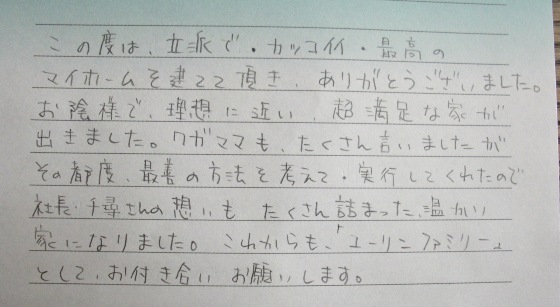 この度は、立派で・カッコイイ・最高の
マイホームを建てて頂き、ありがとうございました。
お陰様で、理想に近い、超満足な家が
出きました。ワガママも、たくさん言いましたが
その都度、最善の方法を考えて・実行してくれたので
社長・千尋さんの想いも たくさん詰まった、温かい
家になりました。これからも、「ユーリンファミリー」
として、お付き合い お願いします。